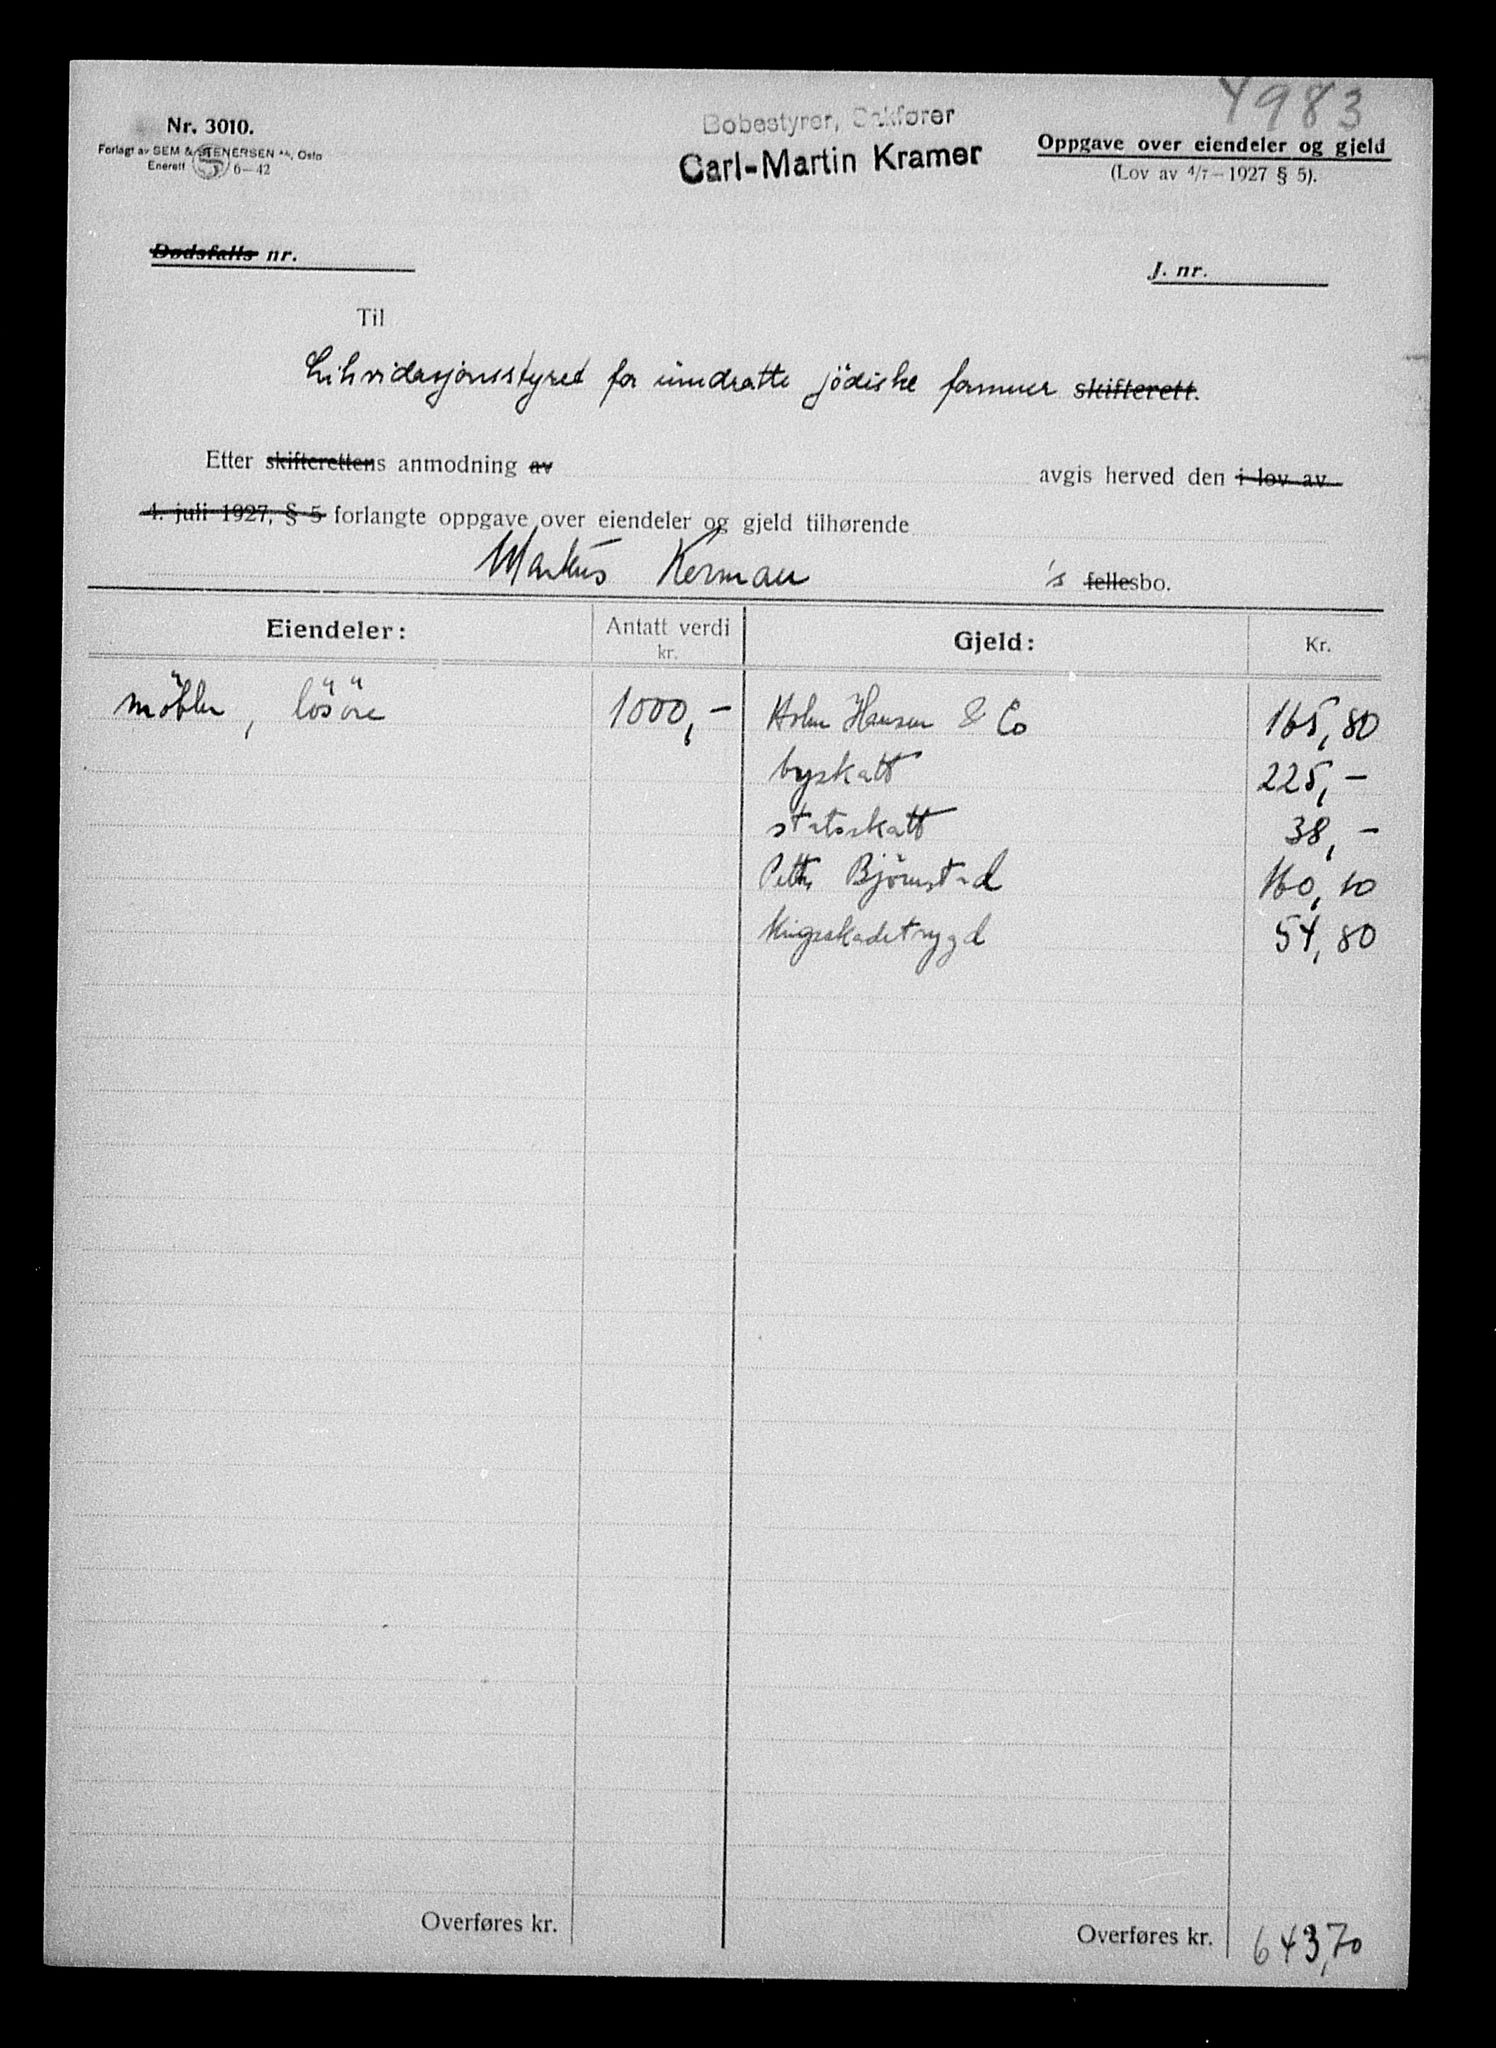 4983
Nr. 3010.
Forlagt av SEM & STENERSEN A/S, Oslo
Enerett 5 6—42
Bobestyrer, Sakfører
Carl-Martin Kramer
Oppgave over eiendeler og gjeld
(Lov av 4/7—1927 § 5).
Dødsfalls nr.
J. nr.
Til
Likvidasjonsstyret for inndratte jödiske formuer skifterett.
Etter skifterettens anmodning av avgis herved den i lov av
4. juli 1927, § 5 forlangte oppgave over eiendeler og gjeld tilhørende
Markus Kerman 's fellesbo.
Eiendeler: Antatt verdi kr. Gjeld: Kr.
möbler, lösöre 1000,— Holm Hansen & Co 165,80
byskatt 225,—
statsskatt 38,—
Petter Björnstad 160,10
Krigsskadetrygd 54,80
Overføres kr. Overføres kr. 643,70